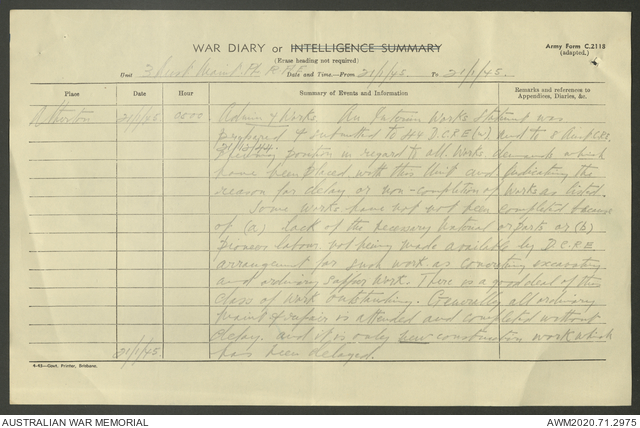 WAR DIARY or INTELLIGENCE SUMMARY
Army Form C.2118
(adapted.)
(Erase heading not required)
Unit 3 Aust Maint. Pl. R.A.E.
Date and Time—From 21/1/45 To 31/1/45
Place Date Hour Summary of Events and Information Remarks and references to Appendices, Diaries, &c.
Atherton 21/1/45 0600 Admin & Works. An Interim Works Statement was
prepared & submitted to HQ D.C.R.E. and to 8 Aust CRE
31/12/44
position in regard to all works demands which
have been placed with this Unit and indicating the
reason for delay or non-completion of works as listed.
Some works have not not been completed because
of (a) lack of the necessary material or parts or (b)
pioneer labour not being made available by D.C.R.E
arrangement for such work as concreting excavating
and ordinary sapper work. There is a good deal of this
class of work outstanding. Generally all ordinary
maint & repair is attended and completed without
delay. and it is only new construction work which
31/1/45 has been delayed.
4-43—Govt. Printer, Brisbane.
AUSTRALIAN WAR MEMORIAL
AWM2020.71.2975